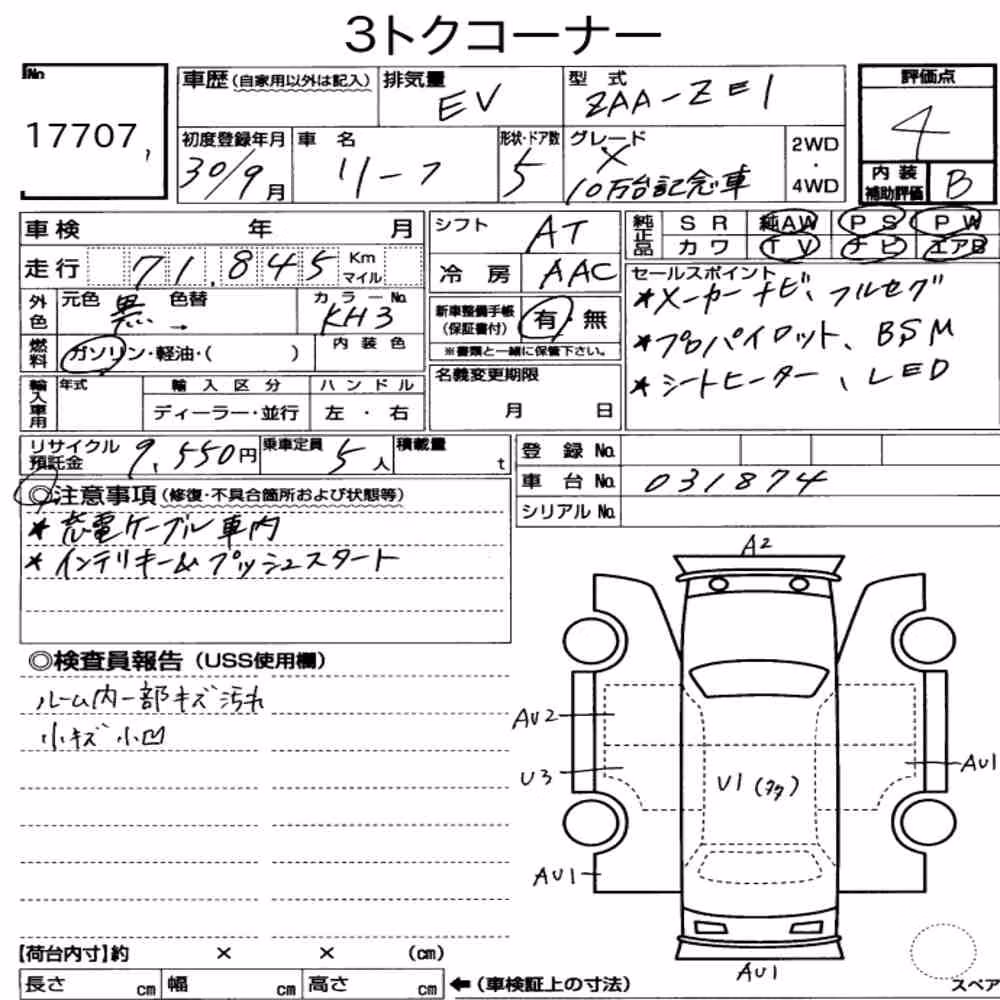 3トクコーナー
No
17707,
車歴(自家用以外は記入) 排気量 EV 型式 ZAA-ZE1
評価点 4
初度登録年月 30/9月 車名 リーフ 形状・ドア数 5 グレード X 10万台記念車 2WD・4WD
内装補助評価 B
車検 年 月
シフト AT
純正品 SR 純AW PS PW
カワ TV ナビ エアB
走行 71,845 Km マイル
冷房 AAC
セールスポイント
*メーカーナビ、フルセグ
*プロパイロット、BSM
*シートヒーター、LED
外色 元色 黒 色替 → カラーNo. KH3
新車整備手帳(保証書付) 有・無
※書類と一緒に保管下さい。
燃料 ガソリン・軽油・( ) 内装色
輸入車用 年式 輸入区分 ハンドル
ディーラー・並行 左・右
名義変更期限
月 日
リサイクル預託金 9,550円 乗車定員 5人 積載量 t
登録No.
車台No. 031874
シリアルNo.
◎注意事項(修復・不具合箇所および状態等)
*充電ケーブル車内
*インテリキー&プッシュスタート
◎検査員報告(USS使用欄)
ルーム内一部キズ汚れ
小キズ小凹
A2
AU2
U3
U1(タタ)
AU1
AU1
AU1
スペア
【荷台内寸】約 × × (cm)
長さ cm 幅 cm 高さ cm ←(車検証上の寸法)